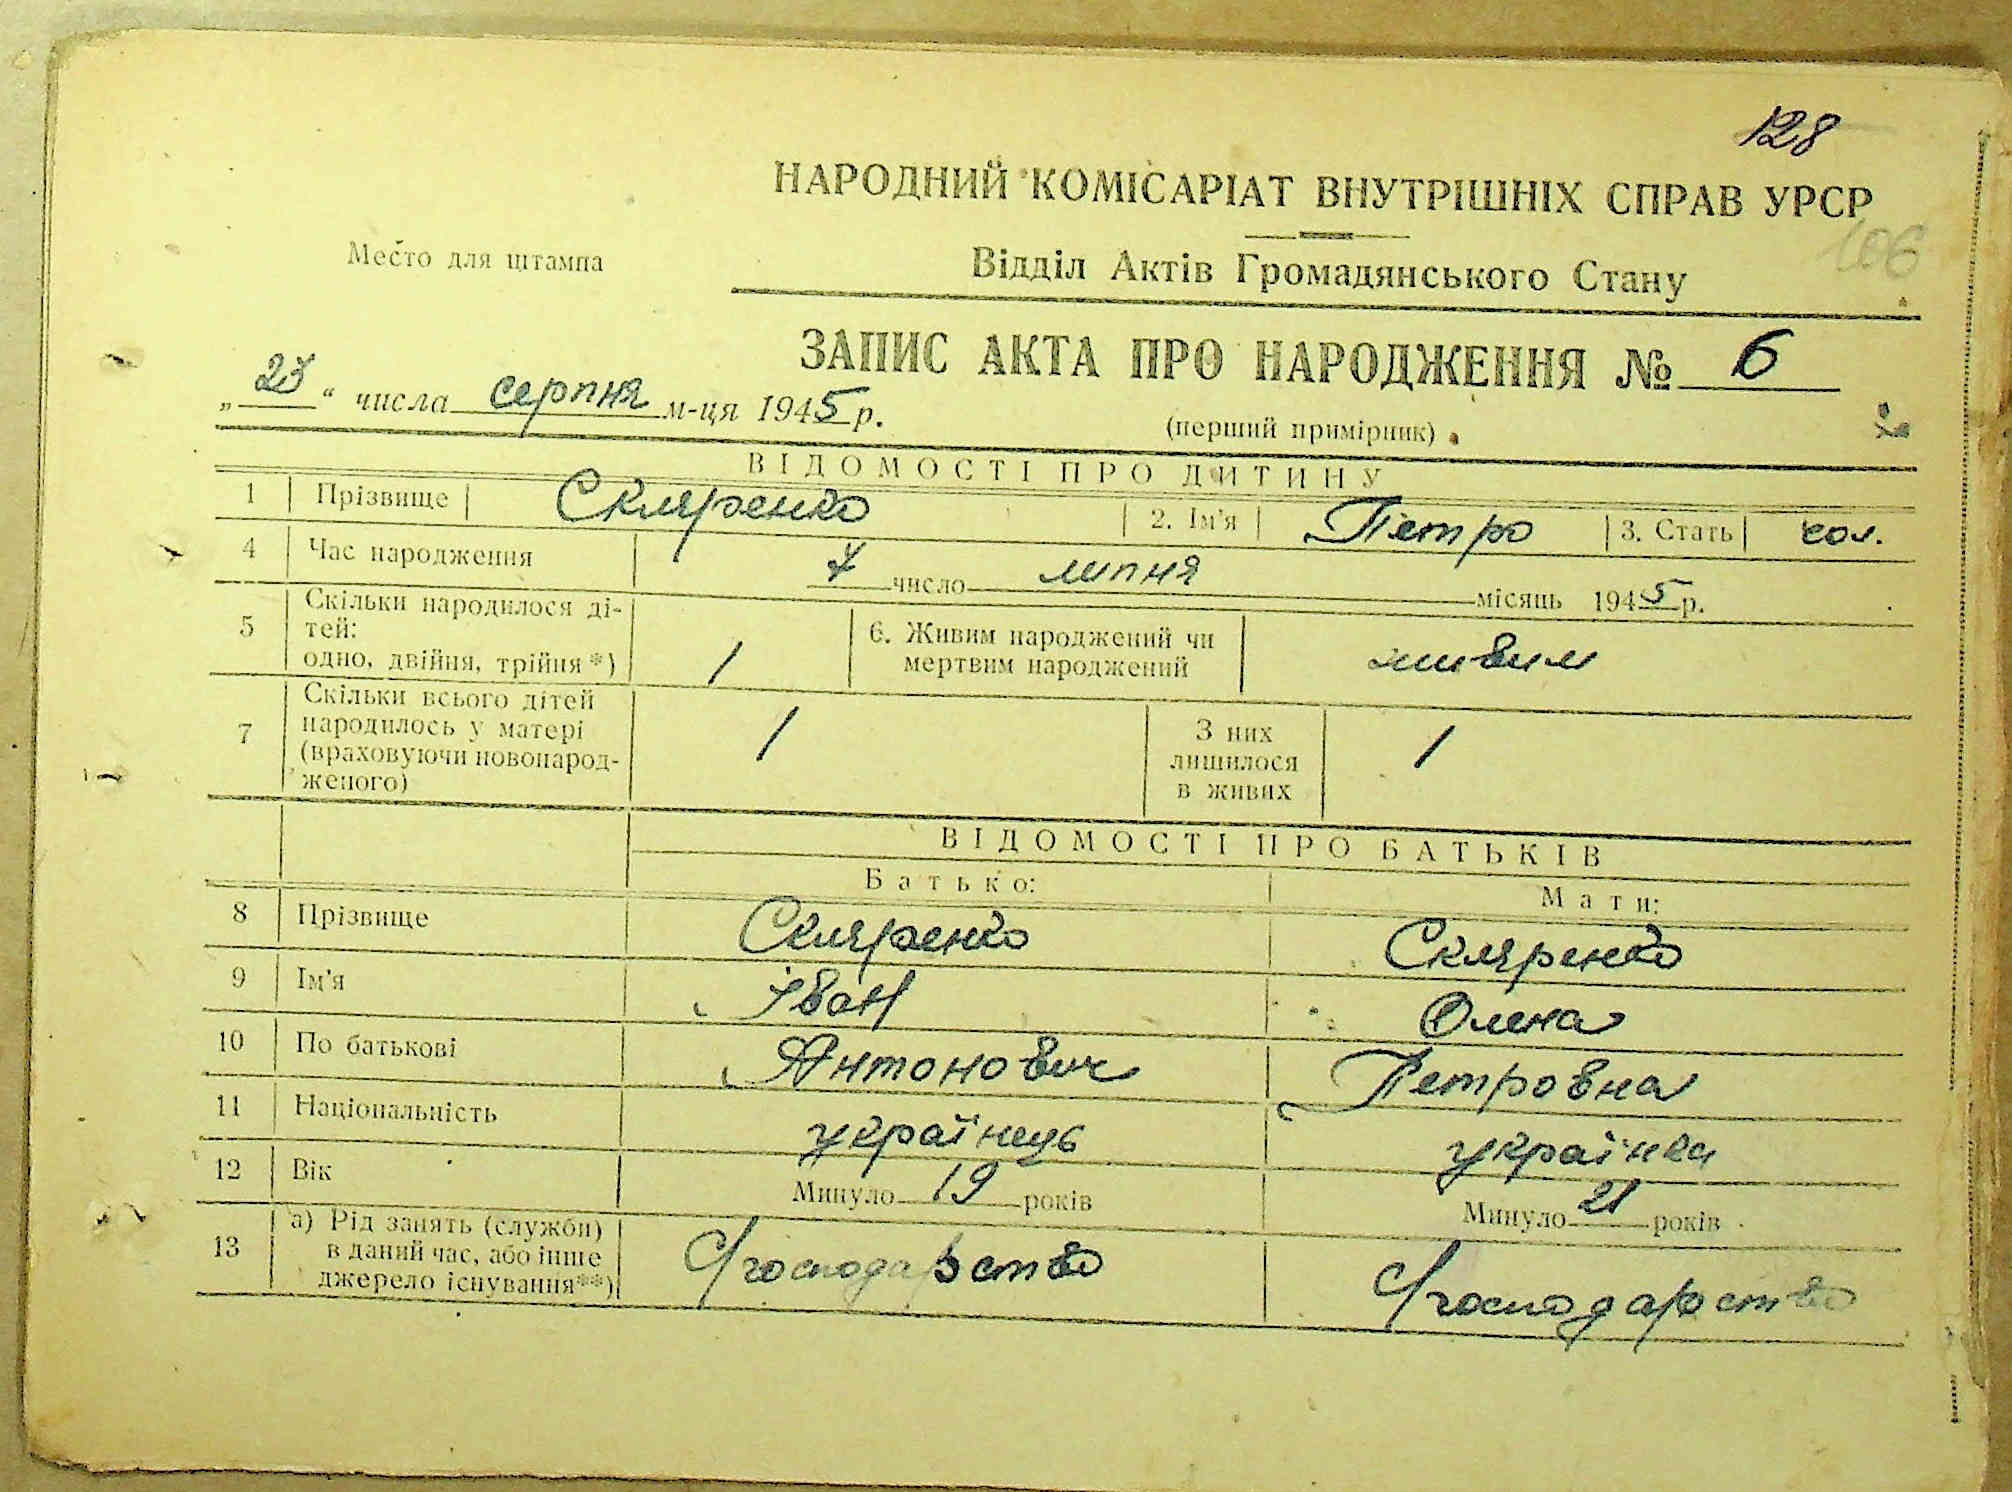 128
НАРОДНИЙ КОМІСАРІАТ ВНУТРІШНІХ СПРАВ УРСР
106
Место для штампа
Відділ Актів Громадянського Стану
ЗАПИС АКТА ПРО НАРОДЖЕННЯ № 6
„23“ числа серпня м-ця 1945 р.
(перший примірник)
ВІДОМОСТІ ПРО ДИТИНУ
1 Прізвище Скляренко 2. Ім'я Петро 3. Стать чол.
4 Час народження 7 число липня місяць 1945 р.
5 Скільки народилося ді-
тей:
одно, двійня, трійня*) 1
6. Живим народжений чи
мертвим народжений живим
7 Скільки всього дітей
народилось у матері
(враховуючи новонарод-
женого) 1
З них
лишилося
в живих 1
ВІДОМОСТІ ПРО БАТЬКІВ
Батько: Мати:
8 Прізвище Скляренко Скляренко
9 Ім'я Іван Олена
10 По батькові Антонович Петровна
11 Національність українець українка
12 Вік Минуло 19 років Минуло 21 років
13 а) Рід занять (служби)
в даний час, або інше
джерело існування**) С/господарство С/господарство